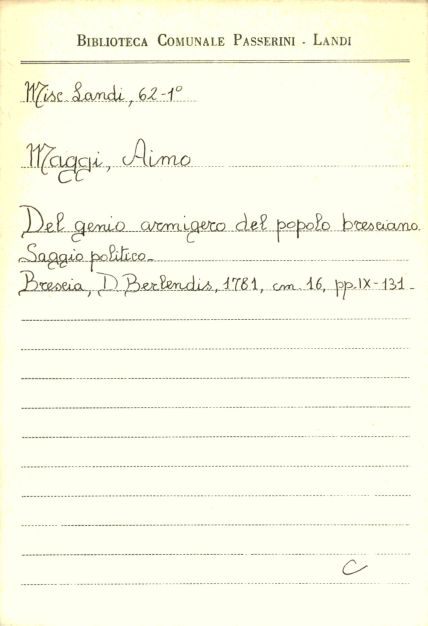 BIBLIOTECA COMUNALE PASSERINI - LANDI
Misc. Landi, 62-1°
Maggi, Aimo
Del genio armigero del popolo bresciano.
Saggio politico.
Brescia, D. Berlendis, 1781, cm. 16, pp. IX-131.
C